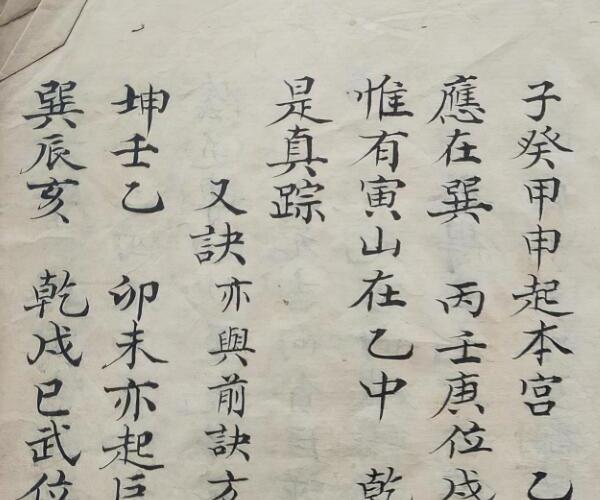 子癸甲申起本宫 乙
應在巽 丙壬庚位戌
惟有寅山在乙中 乾
是真踪
又訣亦與前訣方
坤壬乙 卯未亦起巨
巽辰亥 乾戌巳武位